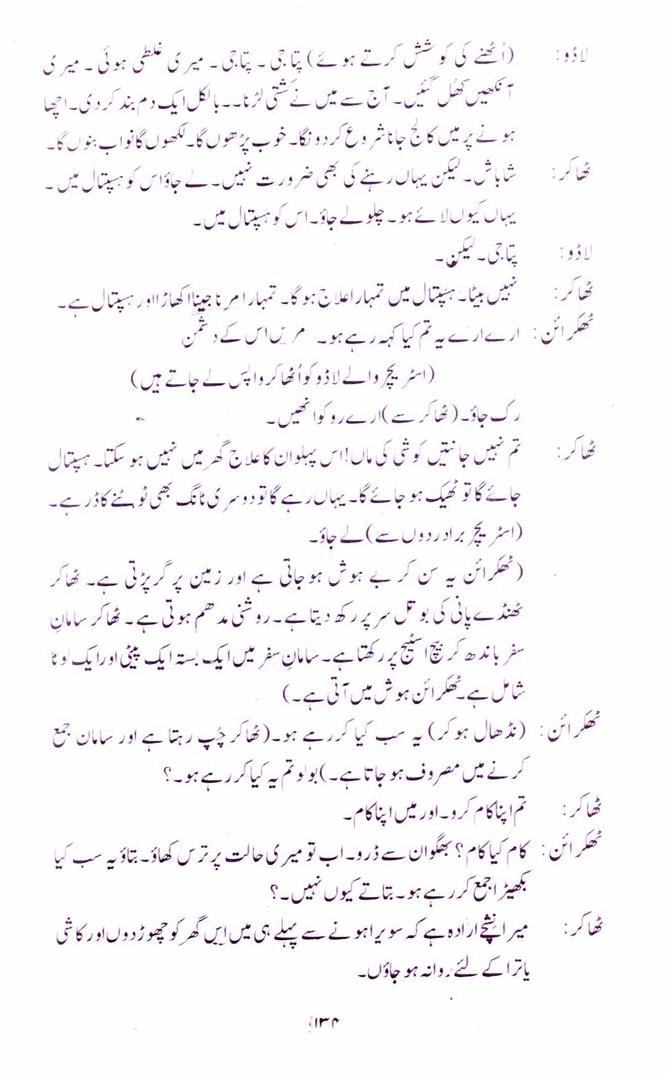 لاڈو: (اُٹھنے کی کوشش کرتے ہوئے) پتاجی ۔ پتاجی ۔ میری غلطی ہوئی ۔ میری
آنکھیں کھُل گئیں۔ آج سے میں نے کُشتی لڑنا۔۔بالکل ایک دم بند کردی۔اچھا
ہونے پر میں کالج جانا شروع کردونگا۔ خوب پڑھوں گا۔لکھوں گا نواب بنوں گا۔
ٹھاکر: شاباش۔ لیکن یہاں رہنے کی بھی ضرورت نہیں۔لے جاؤ اس کو ہسپتال میں ۔
یہاں کیوں لائے ہو۔ چلو لے جاؤ۔اس کو ہسپتال میں۔
لاڈو: پتاجی۔لیکن۔
ٹھاکر: نہیں بیٹا۔ہسپتال میں تمہارا علاج ہوگا۔ تمہارا مرنا جینا اکھاڑا اور ہسپتال ہے۔
ٹھکرائن: ارے ارے یہ تم کیا کہہ رہے ہو۔ مریں اس کے دشمن
(اسٹریچر والے لاڈو کو اُٹھا کر واپس لے جاتے ہیں)
رک جاؤ۔(ٹھاکر سے)ارے روکو انھیں۔
ٹھاکر: تم نہیں جانتیں کوشی کی ماں!اس پہلوان کا علاج گھر میں نہیں ہوسکتا۔ ہسپتال
جائے گا تو ٹھیک ہوجائے گا۔ یہاں رہے گا تو دوسری ٹانگ بھی ٹوٹنے کا ڈر ہے۔
(اسٹریچر برادردوں سے)لے جاؤ۔
(ٹھکرائن یہ سن کر بے ہوش ہو جاتی ہے اور زمین پر گر پڑتی ہے۔ ٹھاکر
ٹھنڈے پانی کی بوتل سر پر رکھ دیتا ہے۔ روشنی مدھم ہوتی ہے۔ ٹھاکر سامانِ
سفر باندھ کر بیچ اسٹیج پر رکھتا ہے۔سامانِ سفر میں ایک بستہ ایک پیٹی اور ایک لوٹا
شامل ہے۔ٹھکرائن ہوش میں آتی ہے۔)
ٹھکرائن: (نڈھال ہوکر) یہ سب کیا کررہے ہو۔(ٹھاکر چُپ رہتا ہے اور سامان جمع
کرنے میں مصروف ہوجاتا ہے۔)بولو تم یہ کیا کررہے ہو۔؟
ٹھاکر: تم اپنا کام کرو۔اور میں اپنا کام۔
ٹھکرائن: کام کیا کام؟ بھگوان سے ڈرو۔اب تو میری حالت پر ترس کھاؤ۔بتاؤ یہ سب کیا
بکھیڑا جمع کررہے ہو۔بتاتے کیوں نہیں۔؟
ٹھاکر: میرا نشچے ارادہ ہے کہ سویرا ہونے سے پہلے ہی میں اِس گھر کو چھوڑدوں اور کاشی
یاترا کے لئے روانہ ہوجاؤں۔
۱۳۴